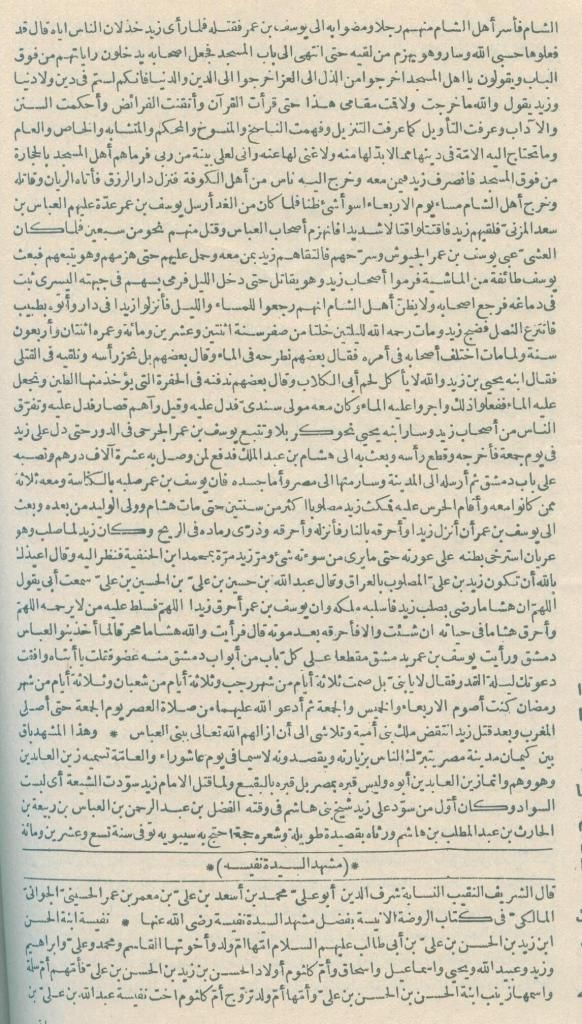 الشام فأسر أهل الشام منهم رجلا ومضوا به الى يوسف بن عمر فقتله فلما رأى زيد خذلان الناس اياه قال قد
فعلوها حسبى الله وسار وهو يهزم من لقيه حتى انتهى الى باب المسجد فجعل اصحابه يدخلون راياتهم من فوق
الباب ويقولون يا اهل المسجد اخرجوا من الذل الى العز اخرجوا الى الدين والدنيا فانكم لستم فى دين ولا دنيا
وزيد يقول والله ما خرجت ولا قت مقامى هذا حتى قرأت القرآن وأتقنت الفرائض وأحكمت السنن
والآداب وعرفت التأويل كما عرفت التنزيل وفهمت الناسخ والمنسوخ والمحكم والمتشابه والخاص والعام
وما تحتاج اليه الامّة فى دينها مما لا بدّ لها منه ولا غنى لها عنه وانى لعلى بينة من ربى فرماهم أهل المسجد بالحجارة
من فوق المسجد فانصرف زيد فيمن معه وخرج اليه ناس من أهل الكوفة فنزل دار الرزق فأتاه الريان وقاتله
وخرج أهل الشام مساء يوم الاربعاء اسوأ شئ ظنا فلما كان من الغد أرسل يوسف بن عمر عدّة عليهم العباس بن
سعد المزنىّ فلقيهم زيد فاقتتلوا قتالا شديدا فانهزم أصحاب العباس وقتل منهم نحو من سبعين فلما كان
العشىّ عبى يوسف بن عمر الجيوش وسرّحهم فالتقاهم زيد بمن معه وحمل عليهم حتى هزمهم وهو يتبعهم فبعث
يوسف طائفة من الناشبة فرموا أصحاب زيد وهو يقاتل حتى دخل الليل فرمى بسهم فى جبهته اليسرى ثبت
فى دماغه فرجع اصحابه ولا يظنّ أهل الشام انهم رجعوا للمساء والليل فأنزلوا زيدا فى دار وأتوه بطبيب
فانتزع النصل فضج زيد ومات رحمه الله لليلتين خلتا من صفر سنة اثنتين وعشرين ومائة وعمره اثنتان وأربعون
سنة ولما مات اختلف أصحابه فى أمره فقال بعضهم نطرحه فى الماء وقال بعضهم بل نحز رأسه ونلقيه فى القتلى
فقال ابنه يحيى بن زيد والله لا يأكل لحم أبى الكلاب وقال بعضهم ندفنه فى الحفرة التى يؤخذ منها الطين ونجعل
عليه الماء ففعلوا ذلك واجروا عليه الماء وكان معه مولى سندىّ فدل عليه وقيل رآهم قصار فدل عليه وتفرّق
الناس من أصحاب زيد وسار ابنه يحيى نحو كربلا وتتبع يوسف بن عمر الجرحى فى الدور حتى دل على زيد
فى يوم جمعة فأخرجه وقطع رأسه وبعث به الى هشام بن عبد الملك فدفع لمن وصل به عشرة آلاف درهم ونصبه
على باب دمشق ثم أرسله الى المدينة وسار منها الى مصر وأما جسده فان يوسف بن عمر صلبه بالكناسة ومعه ثلاثة
ممن كانوا معه وأقام الحرس عليه فمكث زيد مصلوبا اكثر من سنتين حتى مات هشام وولى الوليد من بعده وبعث
الى يوسف بن عمر أن أنزل زيدا وأحرقه بالنار فأنزله وأحرقه وذرّى رماده فى الريح * وكان زيد لما صلب وهو
عريان استرخى بطنه على عورته حتى ما يرى من سوءته شئ ومرّ زيد مرّة بمحمد ابن الحنفية فنظر اليه وقال اعيذك
بالله أن تكون زيد بن علىّ المصلوب بالعراق وقال عبد الله بن حسين بن علىّ بن الحسين بن علىّ سمعت أبى يقول
اللهمّ ان هشاما رضى بصلب زيد فاسلبه ملكه وان يوسف بن عمر أحرق زيدا اللهمّ فسلط عليه من لا يرحمه اللهمّ
وأحرق هشاما فى حياته ان شئت والا فأحرقه بعد موته قال فرأيت والله هشاما محرقا لما أخذ بنو العباس
دمشق ورأيت يوسف بن عمر بدمشق مقطعا على كل باب من أبواب دمشق منه عضو فقلت يا أبتاه وافقت
دعوتك ليلة القدر فقال لا يا بنىّ بل صمت ثلاثة أيام من شهر رجب وثلاثة أيام من شعبان وثلاثة أيام من شهر
رمضان كنت أصوم الاربعاء والخميس والجمعة ثم أدعو الله عليهما من صلاة العصر يوم الجمعة حتى أصلى
المغرب وبعد قتل زيد انتقض ملك بنى أمية وتلاشى الى أن ازالهم الله تعالى ببنى العباس * وهذا المشهد باق
بين كيمان مدينة مصر يتبرّك الناس بزيارته ويقصدونه لا سيما فى يوم عاشوراء والعامّة تسميه زين العابدين
وهو وهم وانما زين العابدين أبوه وليس قبره بمصر بل قبره بالبقيع ولما قتل الامام زيد سوّدت الشيعة أى لبست
السواد وكان أوّل من سوّد على زيد شيخ بنى هاشم فى وقته الفضل بن عبد الرحمن بن العباس بن ربيعة بن
الحارث بن عبد المطلب بن هاشم ورثاه بقصيدة طويلة وشعره حجة احتج به سيبويه توفى سنة تسع وعشرين ومائة
*(مشهد السيدة نفيسة)*
قال الشريف النقيب النسابة شرف الدين أبو علىّ محمد بن أسعد بن علىّ بن معمر بن عمر الحسينىّ الجوانىّ
المالكىّ فى كتاب الروضة الانيسة بفضل مشهد السيدة نفيسة رضى الله عنها * نفيسة ابنة الحسن
ابن زيد بن الحسن بن علىّ بن أبى طالب عليهم السلام امّها امّ ولد وأخوتها القاسم ومحمد وعلىّ وابراهيم
وزيد وعبيد الله ويحيى واسماعيل واسحاق وأمّ كلثوم أولاد الحسن بن زيد بن الحسن بن علىّ فأمّهم أمّ سلمة
واسمها زينب ابنة الحسن بن الحسن بن علىّ وأمّها أمّ ولد تزوّج أمّ كلثوم اخت نفيسة عبد الله بن علىّ بن